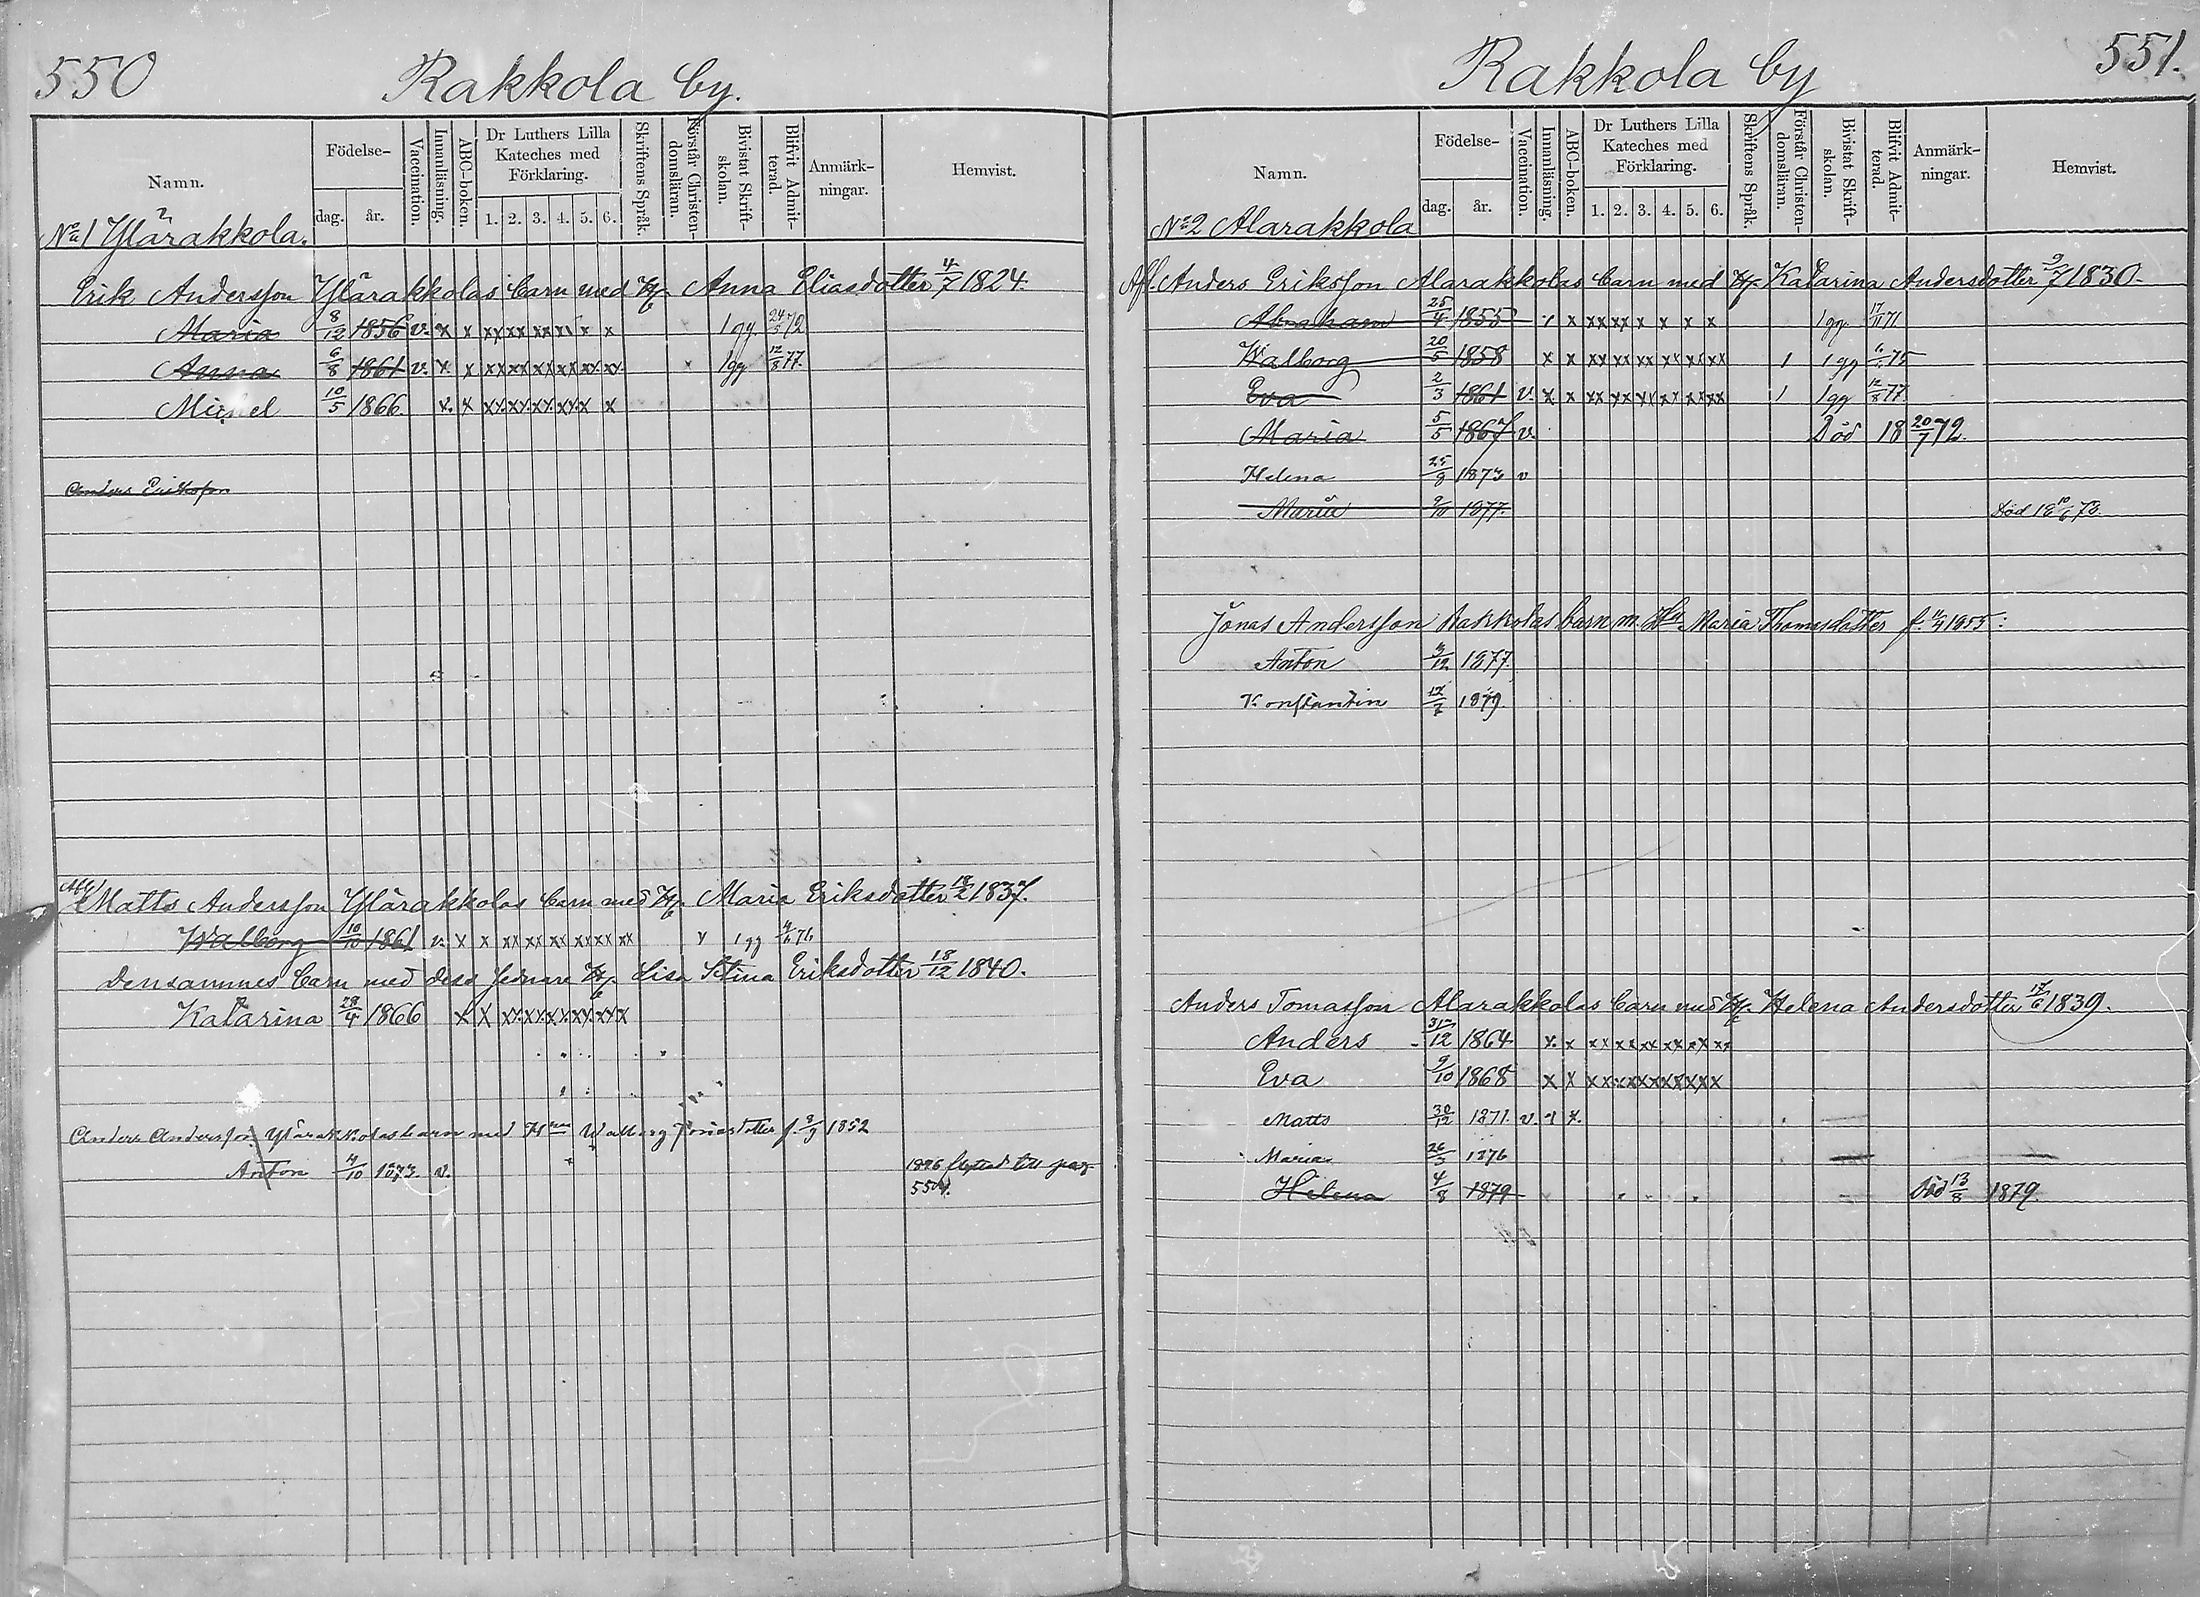 550
Rakkola by.
Namn.
Födelse-
dag.
år.
Vaccination.
Innanläsning.
ABC-boken.
Dr Luthers Lilla
Kateches med
Förklaring.
1. 2. 3. 4. 5. 6.
Skriftens Språk.
Förstår Christen-
domsläran.
Bivistat Skrift-
skolan.
Blifvit Admit-
terad.
Anmärk-
ningar.
Hemvist.
No 1 Ylärakkola.
Erik Andersson Ylärakkolas barn med H. Anna Eliasdotter 4/7 1824.
Maria 8/12 1856 v. x x xx xx xx xx x x 1 gg. 24/5 72
Anna 6/8 1861 v. x x xx xx xx xx xx xx x 1 gg 12/8 77.
Michel 10/5 1866 x. x xx xx xx xx x x
Anders Eriksson
Matts Andersson Ylärakkolas barn med H. Maria Eriksdotter 1837.
Walborg 10/10 1861 v. x x xx xx xx xx xx xx 1 gg 76
Densammes barn med dess sednare H. Lisa Stina Eriksdotter 18/12 1840.
Katarina 1866 x x xx xx xx xx xx x
Anders Andersson Ylärakkolas barn med Walborg f. 1852
Anton 4/10 1873 v. flyttad till pag
551
Rakkola by
Namn.
Födelse-
dag.
år.
Vaccination.
Innanläsning.
ABC-boken.
Dr Luthers Lilla
Kateches med
Förklaring.
1. 2. 3. 4. 5. 6.
Skriftens Språk.
Förstår Christen-
domsläran.
Bivistat Skrift-
skolan.
Blifvit Admit-
terad.
Anmärk-
ningar.
Hemvist.
No 2 Alarakkola
Afl. Anders Eriksson Alarakkolas barn med H. Katarina Andersdotter 1830.
Abraham 25/4 1855 x x xx xx x x x x 1 gg. 17/11 71
Walborg 20/5 1858 x x xx xx xx xx xx xx 1 1 gg 75
Eva 2/3 1861 v. x x xx xx xx xx xx xx 1 1 gg 12/8 77.
Maria 5/5 1867 v. Död 18 20/7 72.
Helena 1873 v
Maria 9/10 1877. Död 18 10/6 78.
Jonas Andersson Rakkolas barn m. Maria Thomasdotter f. 1855:
Anton 1877.
Konstantin 1879.
Anders Tomasson Alarakkolas barn med H. Helena Andersdotter 1839.
Anders 31/12 1864 x. x xx xx xx xx xx xx
Eva 9/10 1868 x x xx xx xx xx xx x
Matts 30/12 1871. v. x x.
Maria 1876
Helena 4/8 1879 Död 13/8 1879.